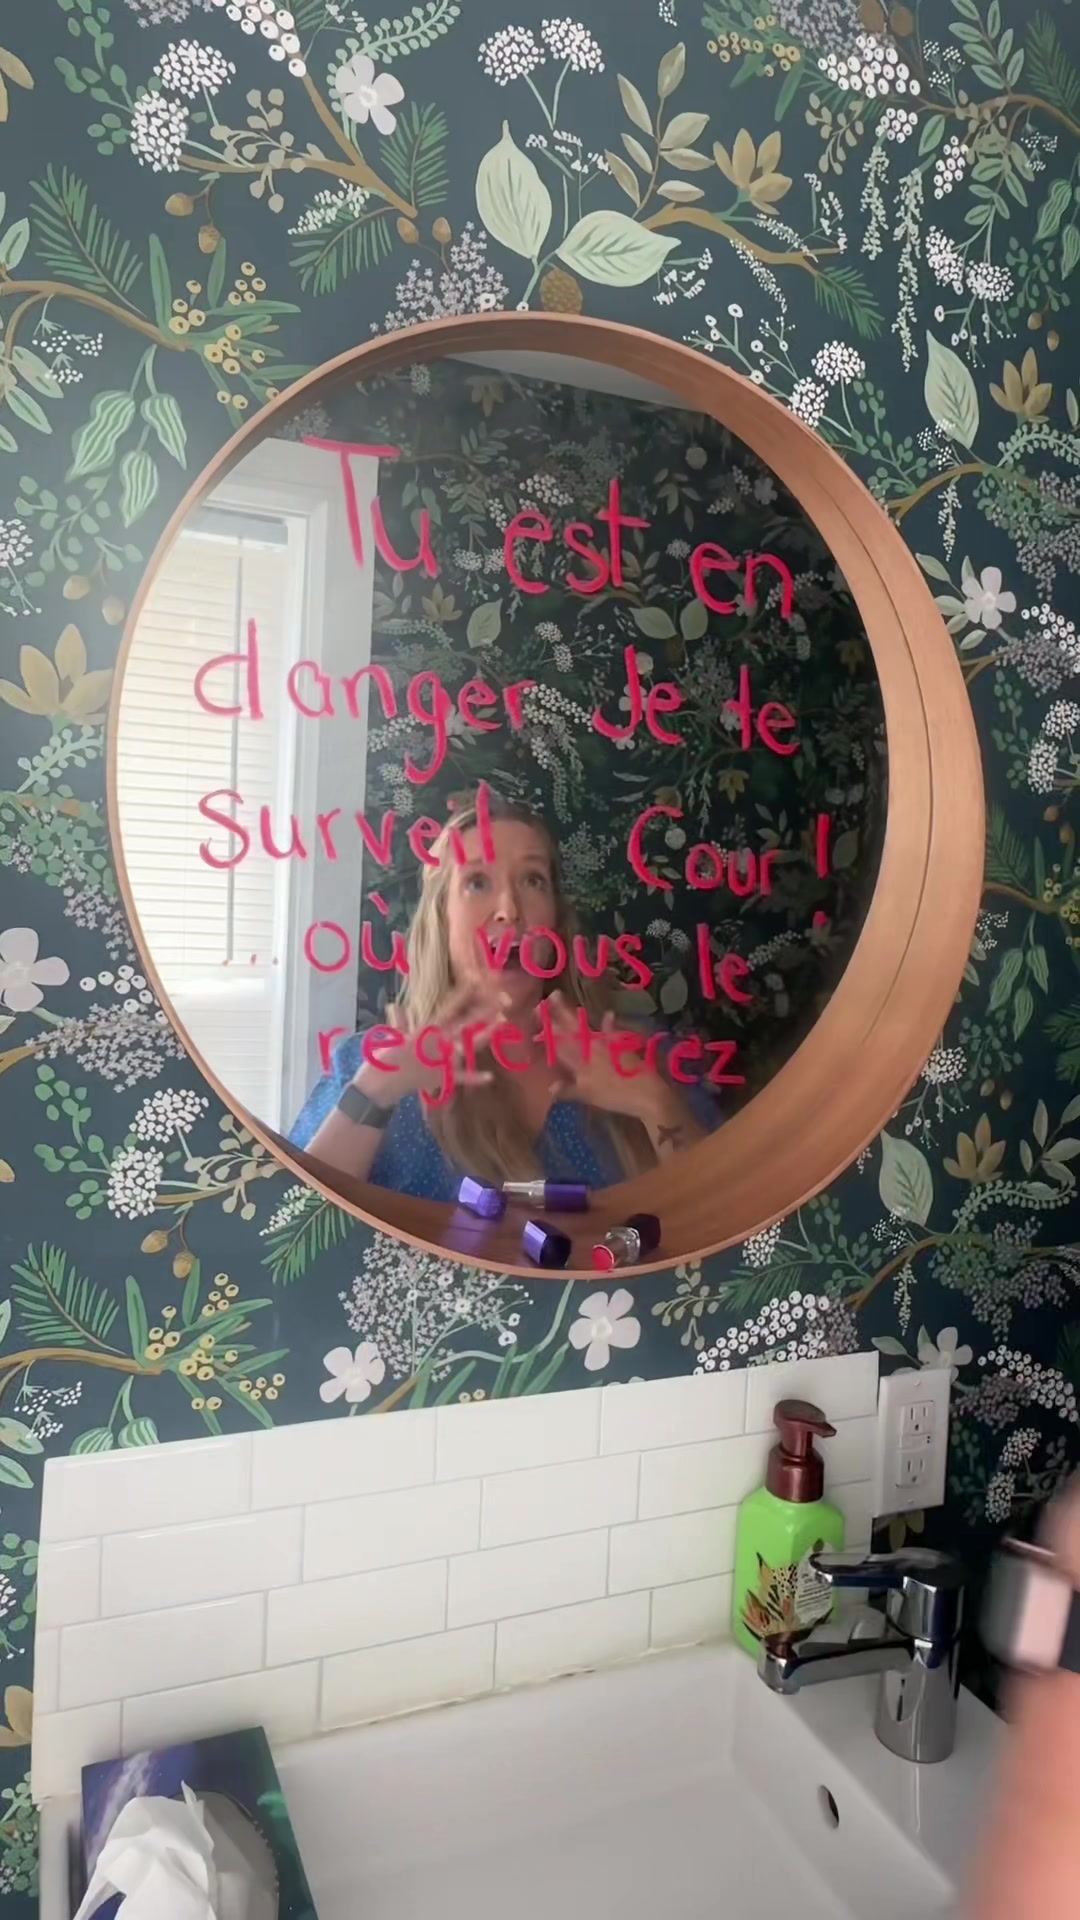 Tu est en
danger Je te
surveil Cour!
où vous le
regretterez